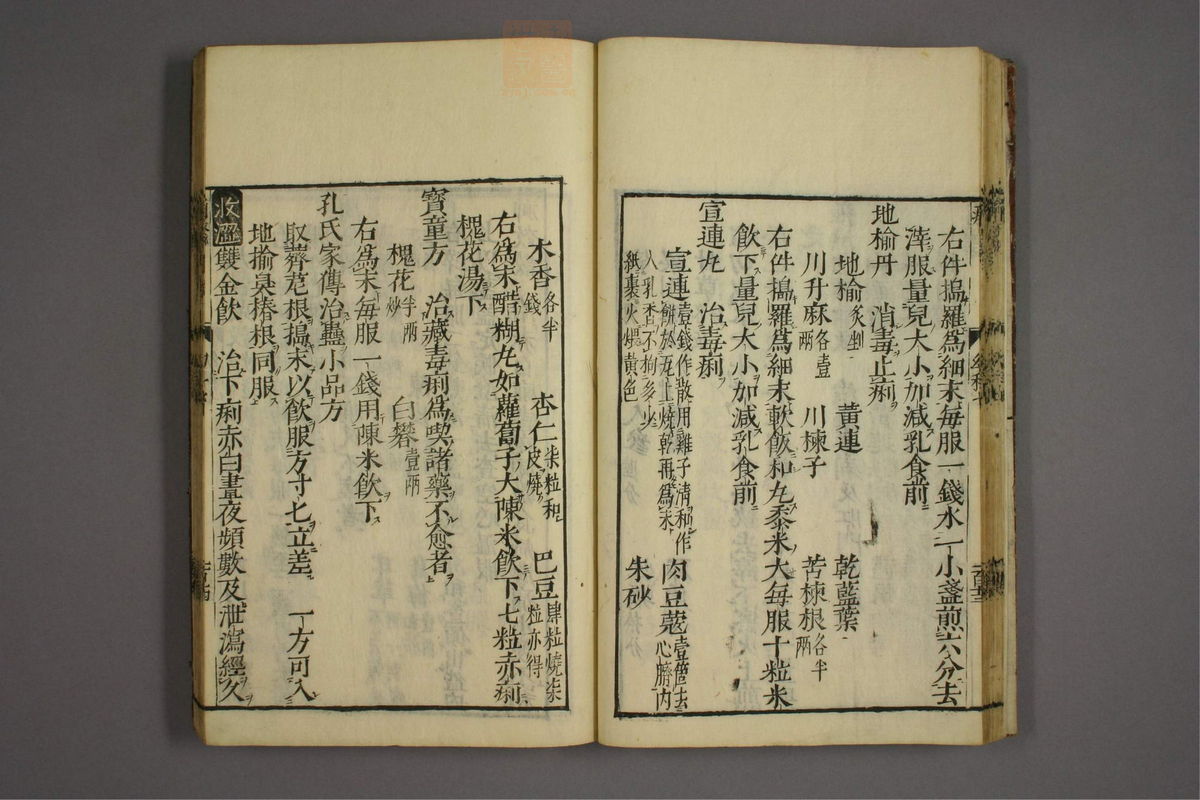 右件搗羅爲細末每服一錢水一小盞煎六分去
滓服量兒大小加減乳食前
地榆丹　消毒止痢
地榆炙剉　黃連　乾藍葉
川升麻各壹兩　川楝子　苦楝根各半兩
右件搗羅爲細末軟飯和丸黍米大每服十粒米
飲下量兒大小加減乳食前
宣連丸　治毒痢
宣連壹錢作散用雞子清和作餅於瓦上燒乾再爲末　肉豆蔻壹箇去心臍內
入乳香不拘多少紙裹火煨黃色　朱砂
木香各半錢　杏仁柒粒和皮燒　巴豆肆粒燒柒粒亦得
右爲末醋糊丸如蘿蔔子大陳米飲下七粒赤痢
槐花湯下
寶童方　治藏毒痢爲喫諸藥不愈者
槐花半兩炒　白礬壹兩
右爲末每服一錢用陳米飲下
孔氏家傳治蠱小品方
取薺苨根搗末以飲服方寸匕立差　一方可入
地榆臭椿根同服
收澀雙金飲　治下痢赤白晝夜頻數及泄瀉經久